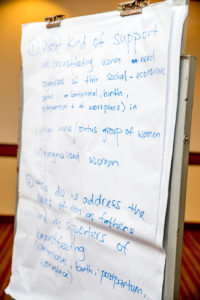 ① What kind of support
do breastfeeding women need
of their social-economic
(antenatal, birth,
postpartum & workplace) in
status group of women
marginalised women
② How do we address the
needs of men as fathers
and as
of
breastfeeding
workplace) birth, postpartum,